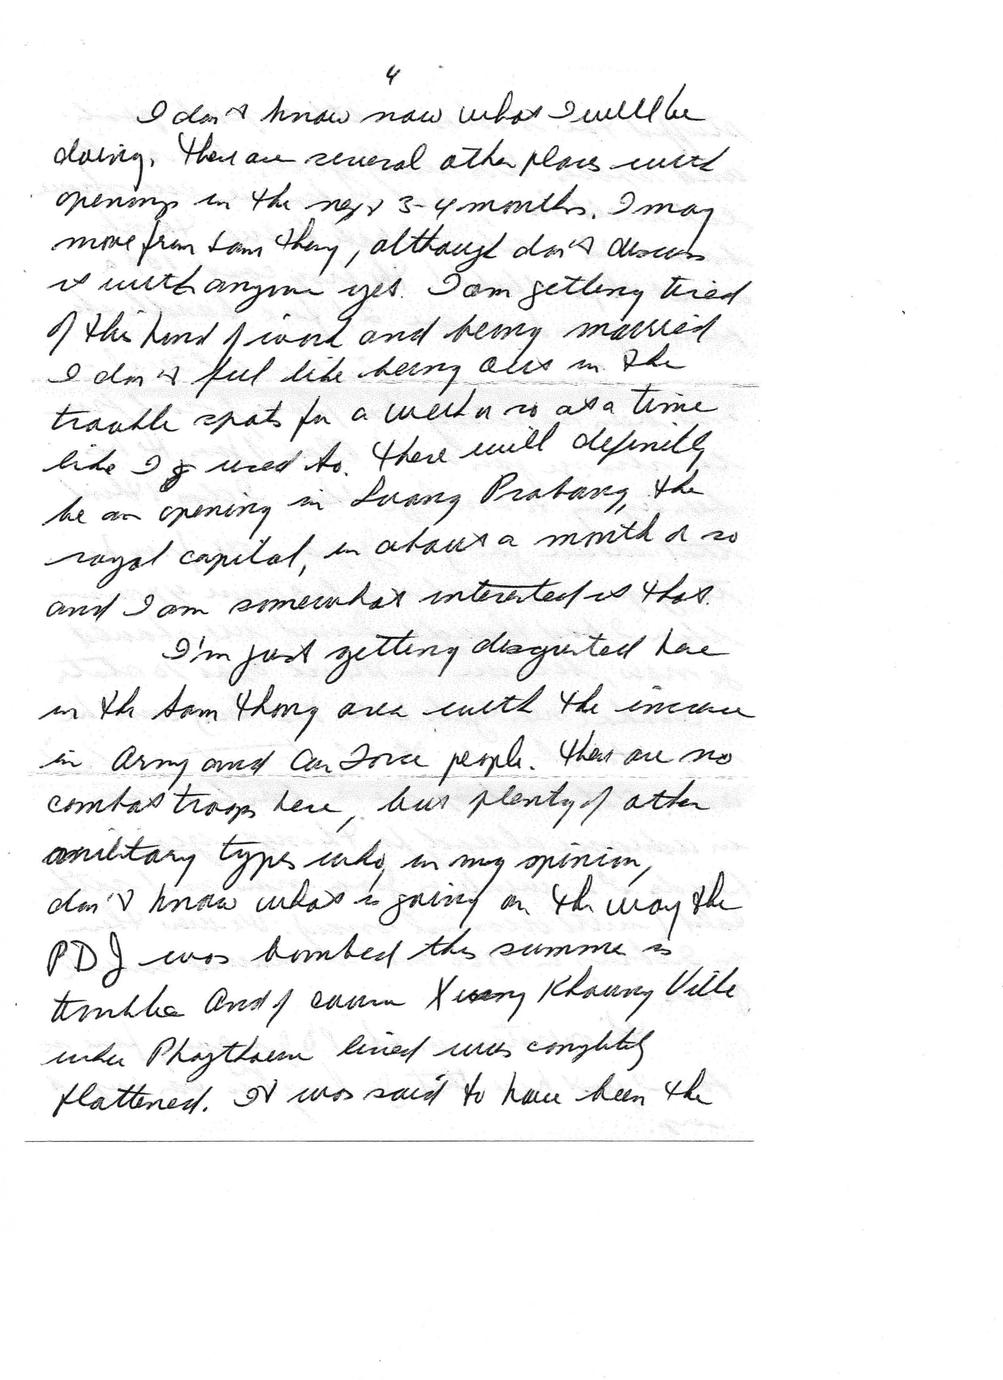 4
I don't know now what I will be
doing. There are several other places with
openings in the next 3-4 months. I may
move from Sam Thong, although don't discuss
it with anyone yet. I am getting tired
of this kind of work and being married
I don't feel like being out in the
trouble spots for a week or so at a time
like I used to. There will definitly
be an opening in Luang Prabang, the
royal capital, in about a month or so
and I am somewhat interested it that.
I'm just getting disgusted here
in the Sam Thong area with the increase
in Army and Air Force people. There are no
combat troops here, but plenty of other
military types who, in my opinion,
don't know what is going on. The way the
PDJ was bombed this summer is
terrible and of course Xieng Khouang Ville
where lived was completely
flattened. It was said to have been the